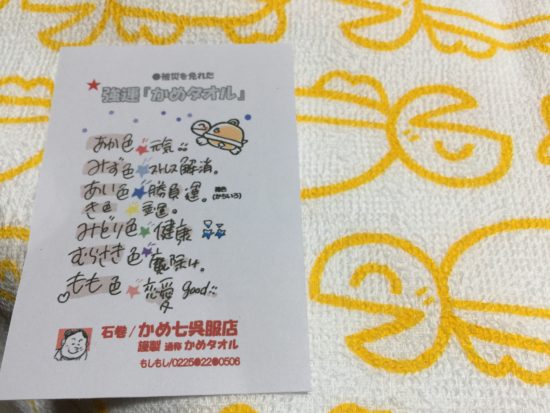 ●被災を免れた
★強運「かめタオル」
あか色★元気
みず色★ストレス解消。
あい色★勝負運。 褐色(かちいろ)
き色★金運。
みどり色★健康
むらさき色★厄除け。
♡もも色★恋愛 good
石巻/かめ七呉服店
謹製 通称 かめタオル
もしもし/0225●22●0506